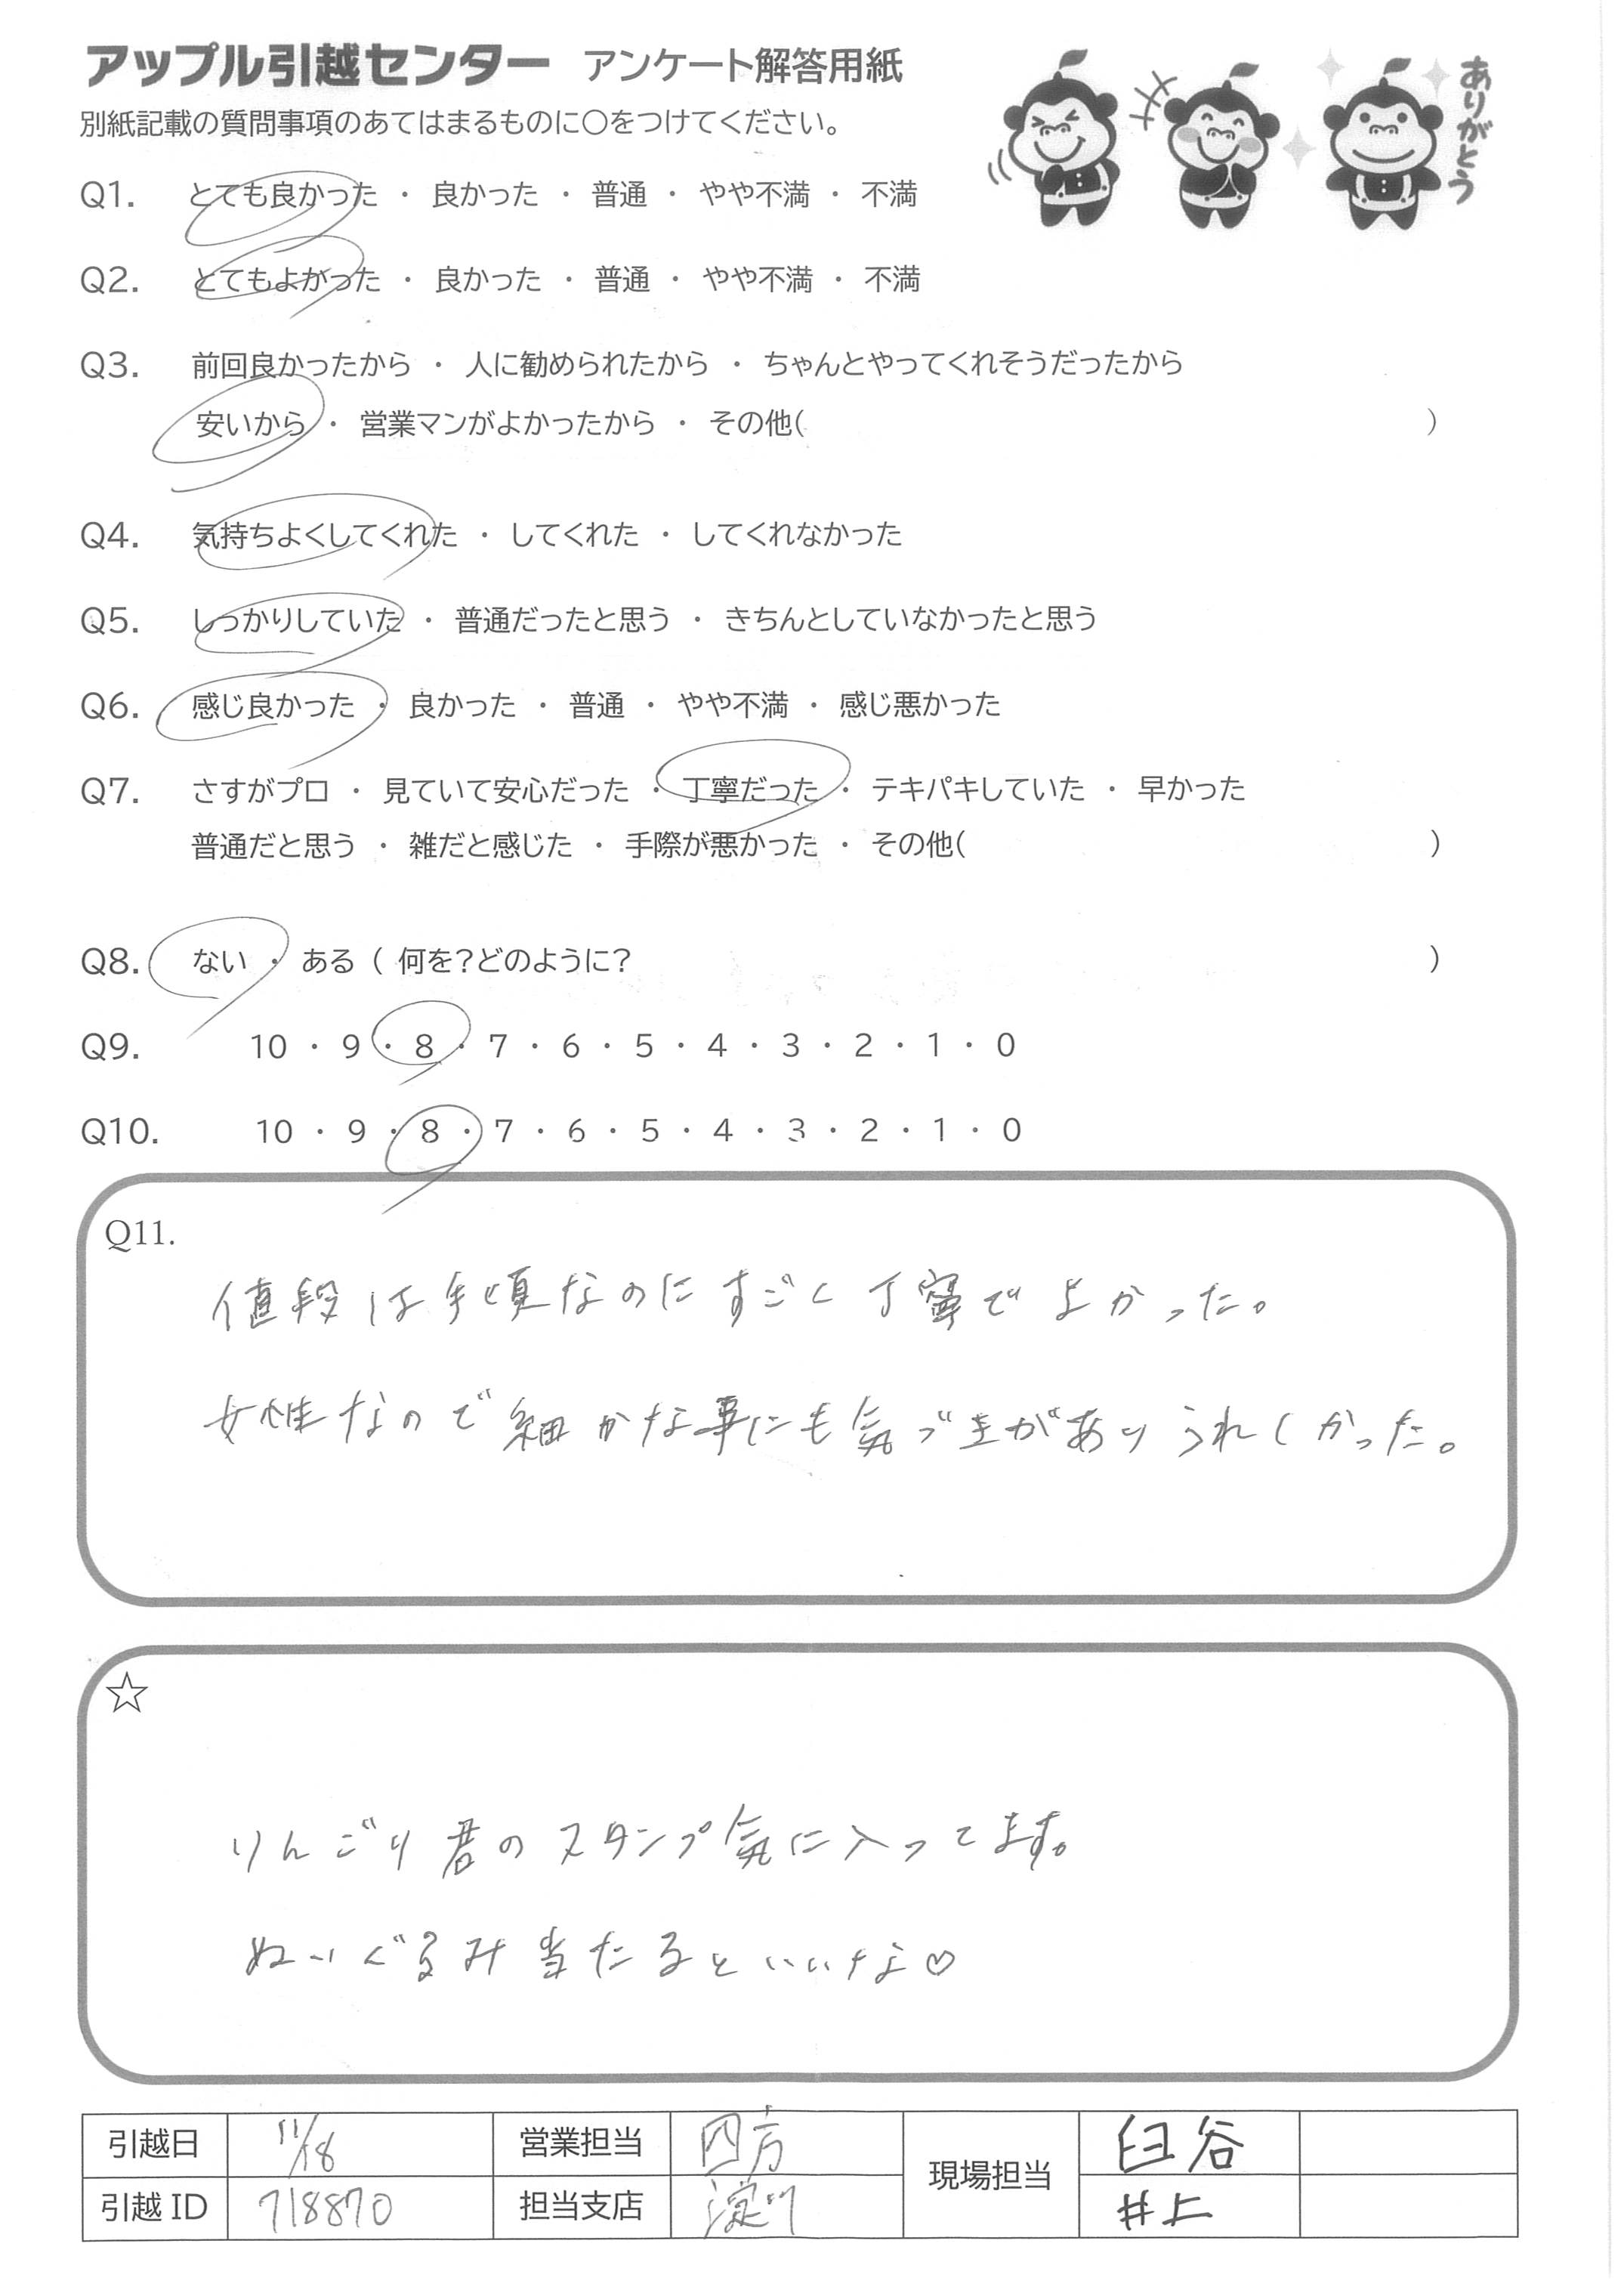 アップル引越センター アンケート解答用紙
ありがとう
別紙記載の質問事項のあてはまるものに〇をつけてください。
Q1. とても良かった ・ 良かった ・ 普通 ・ やや不満 ・ 不満
Q2. とてもよかった ・ 良かった ・ 普通 ・ やや不満 ・ 不満
Q3. 前回良かったから ・ 人に勧められたから ・ ちゃんとやってくれそうだったから
安いから ・ 営業マンがよかったから ・ その他( )
Q4. 気持ちよくしてくれた ・ してくれた ・ してくれなかった
Q5. しっかりしていた ・ 普通だったと思う ・ きちんとしていなかったと思う
Q6. 感じ良かった ・ 良かった ・ 普通 ・ やや不満 ・ 感じ悪かった
Q7. さすがプロ ・ 見ていて安心だった ・ 丁寧だった ・ テキパキしていた ・ 早かった
普通だと思う ・ 雑だと感じた ・ 手際が悪かった ・ その他( )
Q8. ない ・ ある ( 何を?どのように? )
Q9. 10 ・ 9 ・ 8 ・ 7 ・ 6 ・ 5 ・ 4 ・ 3 ・ 2 ・ 1 ・ 0
Q10. 10 ・ 9 ・ 8 ・ 7 ・ 6 ・ 5 ・ 4 ・ 3 ・ 2 ・ 1 ・ 0
Q11.
値段は手頃なのにすごく丁寧でよかった。
女性なので細かな事にも気づきがありうれしかった。
☆
りんごり君のスタンプ気に入ってます。
ぬいぐるみ当たるといいな♡
引越日 11/18 営業担当 四方 現場担当 臼谷
引越ID 718870 担当支店 淀川 井上